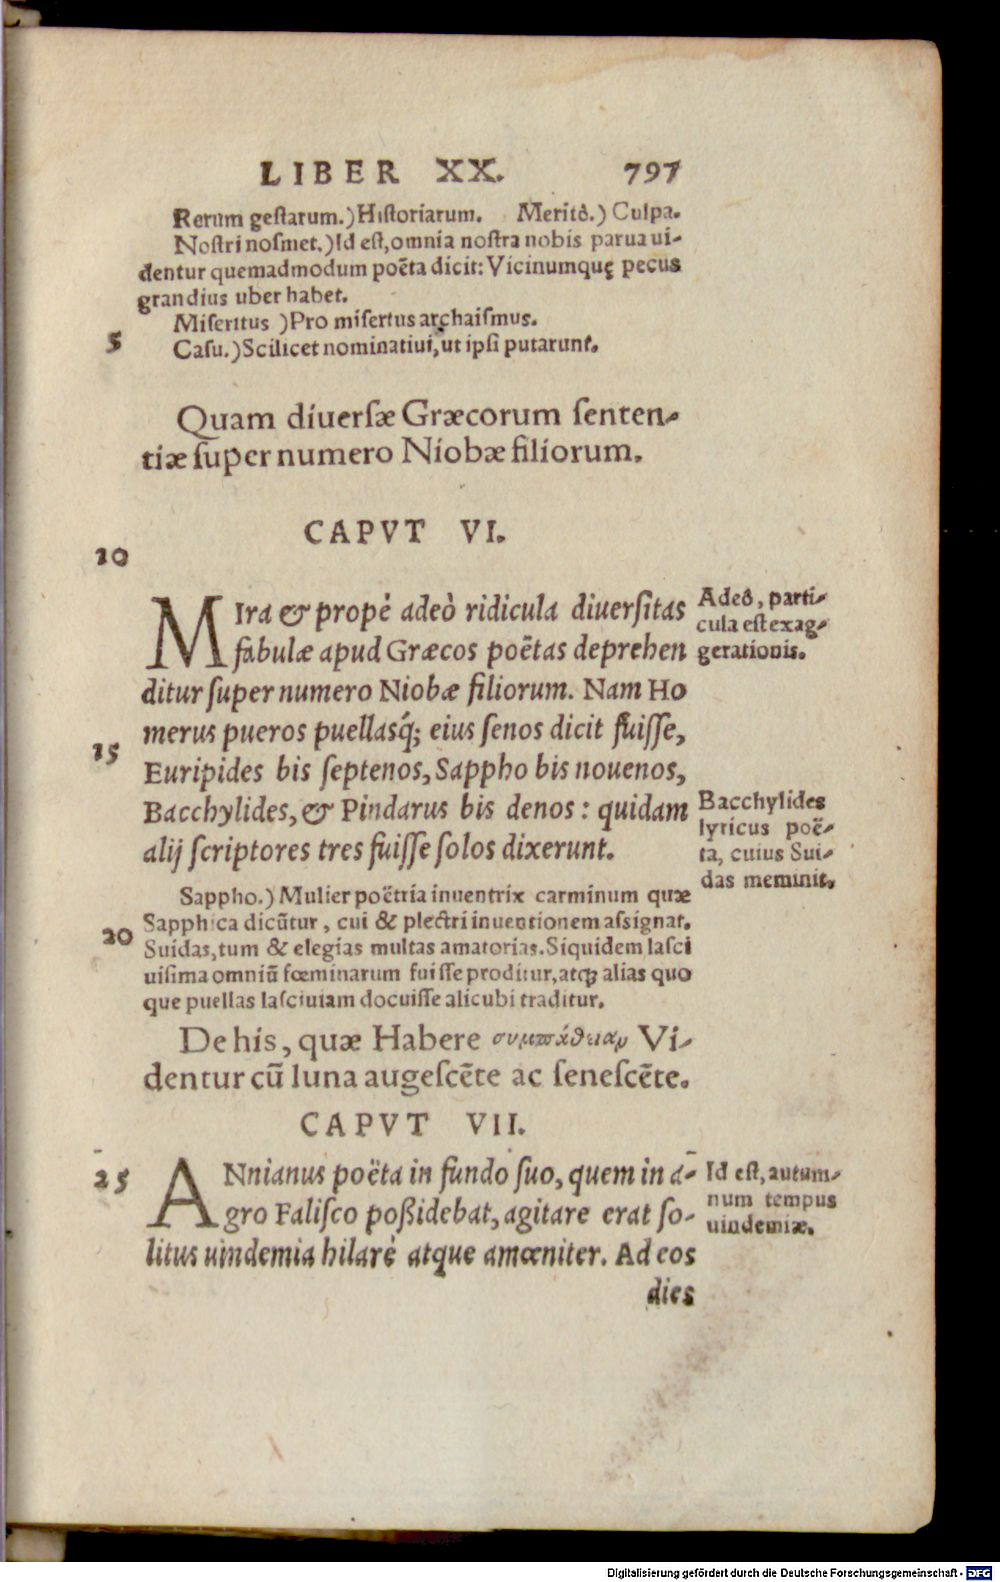 LIBER XX. 797
Rerum gestarum.) Historiarum. Meritò.) Culpa.
Nostri nosmet.) Id est, omnia nostra nobis parua ui-
dentur quemadmodum poëta dicit: Vicinumquę pecus
grandius uber habet.
Miseritus ) Pro misertus archaismus.
5
Casu.) Scilicet nominatiui, ut ipsi putarunt.
Quam diuersæ Græcorum senten-
tiæ super numero Niobæ filiorum.
CAPVT VI.
10
MIra & propè adeò ridicula diuersitas
fabulæ apud Græcos poëtas deprehen
ditur super numero Niobæ filiorum. Nam Ho
merus pueros puellasq́; eius senos dicit fuisse,
15
Euripides bis septenos, Sappho bis nouenos,
Bacchylides, & Pindarus bis denos: quidam
alij scriptores tres fuisse solos dixerunt.
Adeò, parti-
cula est exag-
gerationis.
Bacchylides
lyricus poë-
ta, cuius Sui-
das meminit.
Sappho.) Mulier poëtria inuentrix carminum quæ
Sapphica dicūtur, cui & plectri inuentionem assignat.
20
Suidas, tum & elegias multas amatorias. Siquidem lasci
uisima omniū fœminarum fuisse proditur, atqꝫ alias quo
que puellas lasciuiam docuisse alicubi traditur.
De his, quæ Habere συμπάθειαν Vi-
dentur cū luna augescēte ac senescēte.
CAPVT VII.
25
ANnianus poëta in fundo suo, quem in a-
gro Falisco poßidebat, agitare erat so-
litus uindemia hilarè atque amœniter. Ad eos
dies
Id est, autum-
num tempus
uindemiæ.
Digitalisierung gefördert durch die Deutsche Forschungsgemeinschaft - DFG